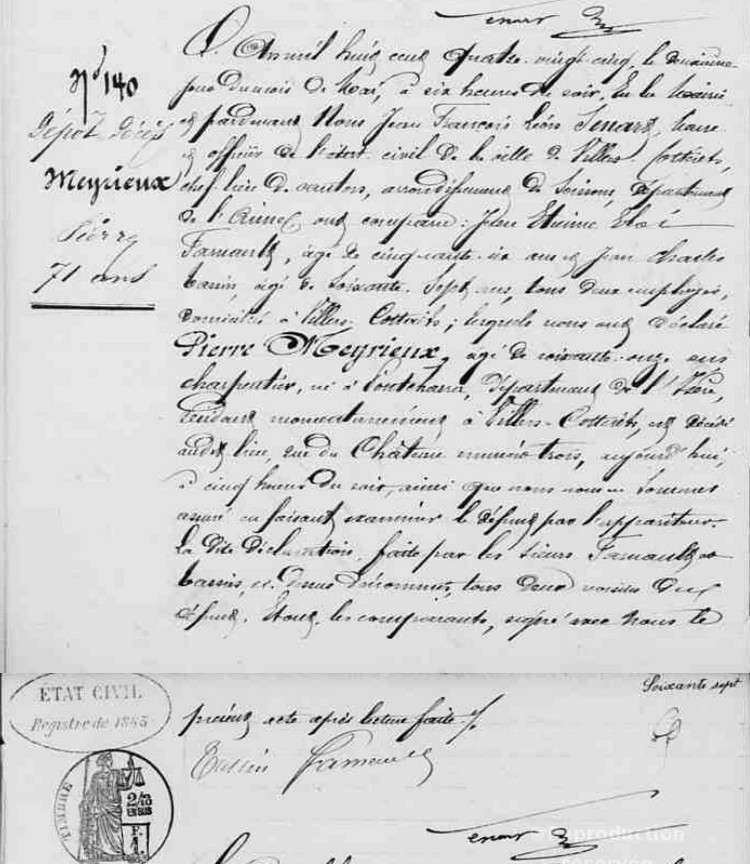 Senart
Nº 140
Dépôt Décès
Meyrieux
Pierre
71 ans
L'An mil huit cent quatre-vingt-cinq, le douzième
jour du mois de Mai, à six heures du soir, En la Mairie
et pardevant Nous Jean François Léon Senart, Maire
et officier de l'état-civil de la ville de Villers-Cotterêts,
chef lieu de canton, arrondissement de Soissons, Département
de l'Aisne, ont comparu : Jean Etienne Eloi
Farnault, âgé de cinquante-six ans et Jean Charles
Bassin, âgé de soixante-sept ans, tous deux employés,
domiciliés à Villers-Cotterêts ; lesquels nous ont déclaré
Pierre Meyrieux, âgé de soixante-onze ans
charpentier, né à Pontcharra, Département de l'Isère,
résidant momentanément à Villers-Cotterêts, est décédé
audit lieu, rue du Château numéro trois, aujourd'hui,
à cinq heures du soir, ainsi que nous nous en sommes
assuré en faisant examiner le défunt par l'appariteur.
La dite déclaration, faite par les sieurs Farnault et
Bassin, ci-dessus dénommés, tous deux voisins du
défunt. Et ont, les comparants, signé avec Nous le
ETAT CIVIL
Registre de 1885
Soixante sept
présent acte après lecture faite ./.
Bassin Farnault
TIMBRE
2/10
EN SUS
F.
1.
Senart
reproduction